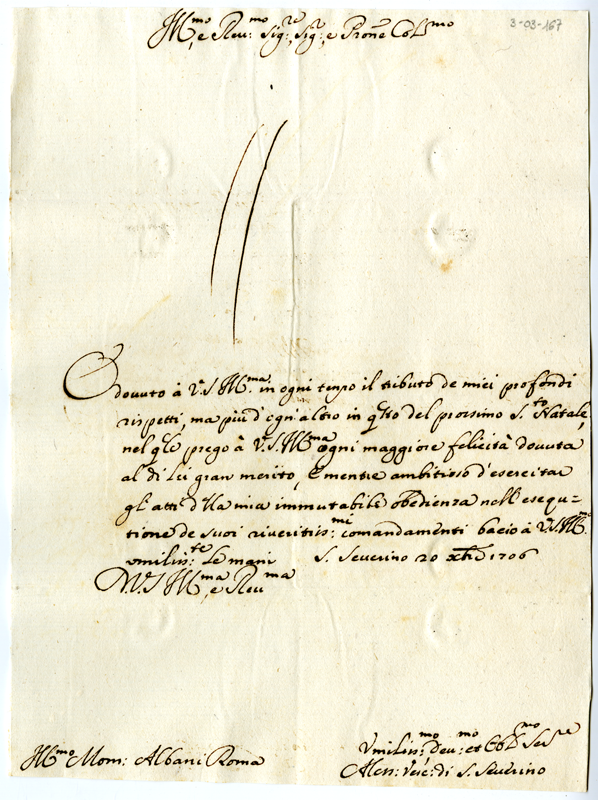 3-03-167
Ill.mo, e Reu:mo Sig:re Sig:r, e Prone Col.mo
È douuto à V.S. Ill.ma in ogni tempo il tributo de miei profondi
rispetti, ma più d'ogn'altro in q.sto del prossimo S.to Natale,
nel q.le prego à V.S. Ill.ma ogni maggiore felicità douuta
al di Lei gran merito, E mentre ambitioso d'esercitar
gl'atti d'lla mia immutabile obedienza nell'esequ=
tione de suoi riueritiss:mi comandamenti bacio à V.S. Ill.ma
vmiliss:te le mani S. Seuerino 20 xbre 1706
D.V.S. Ill.ma, e Reu.ma
Vmiliss:mo Deu:mo et Obl.mo Ser.re
Ill.mo Mons: Albani Roma
Aless: Vesc: di S. Seuerino